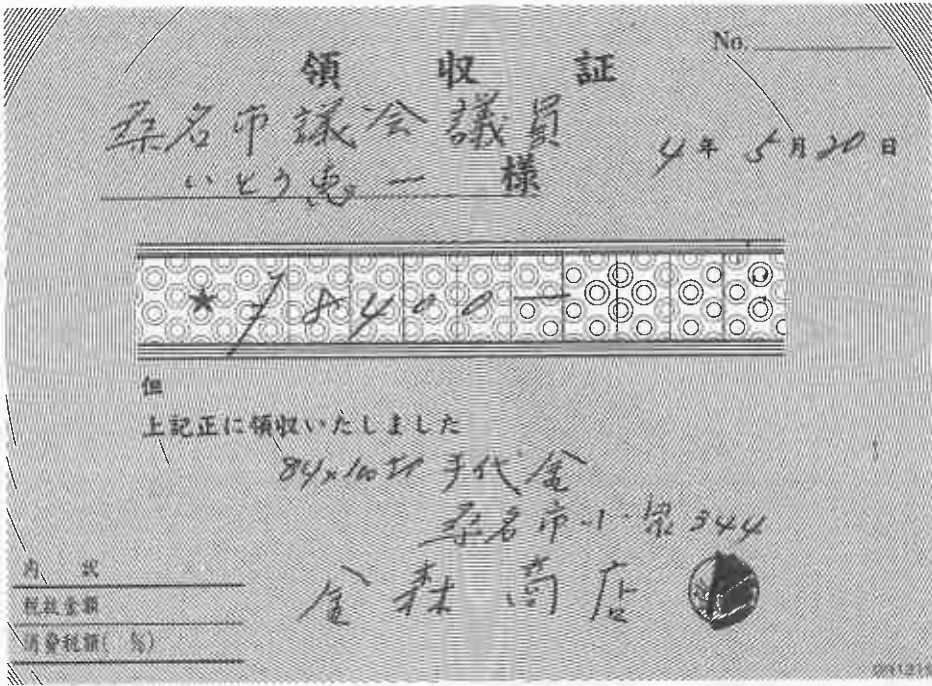 No.
領収証
桑名市議会議員
いとう恵一 様
4年 5月 20日
★ ¥8400—
但
上記正に領収いたしました
84×100 切手代金
桑名市小泉344
金森商店
内訳
税抜金額
消費税額( %)